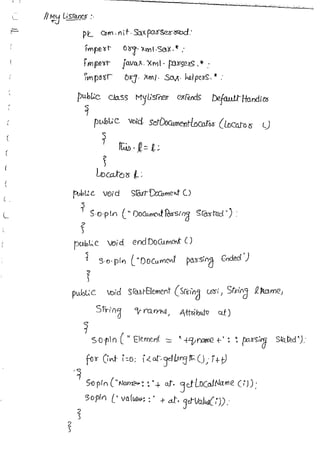 // My Listener :
pk com.nit.saxparser.mod;
import org.xml.sax.*;
import javax.xml.parsers.*;
import org.xml.sax.helpers.*;
public class MyListner extends DefaultHandler
{
public void setDocumentLocator (Locator l)
{
this.l = l;
}
Locator l;
public void startDocument ()
{
s.o.pln ("Document Parsing Started");
}
public void endDocument ()
{
s.o.pln ("Document parsing Ended")
}
public void startElement (String uri, String lname,
String qname, Attribute at)
{
sopln (" Element = "+qname+" : : parsing started");
for (int i=0; i<at.getLength(); i++)
{
sopln ("Name: : "+ at.getLocalName (i));
sopln ("value: : " + at.getValue(i));
}
}